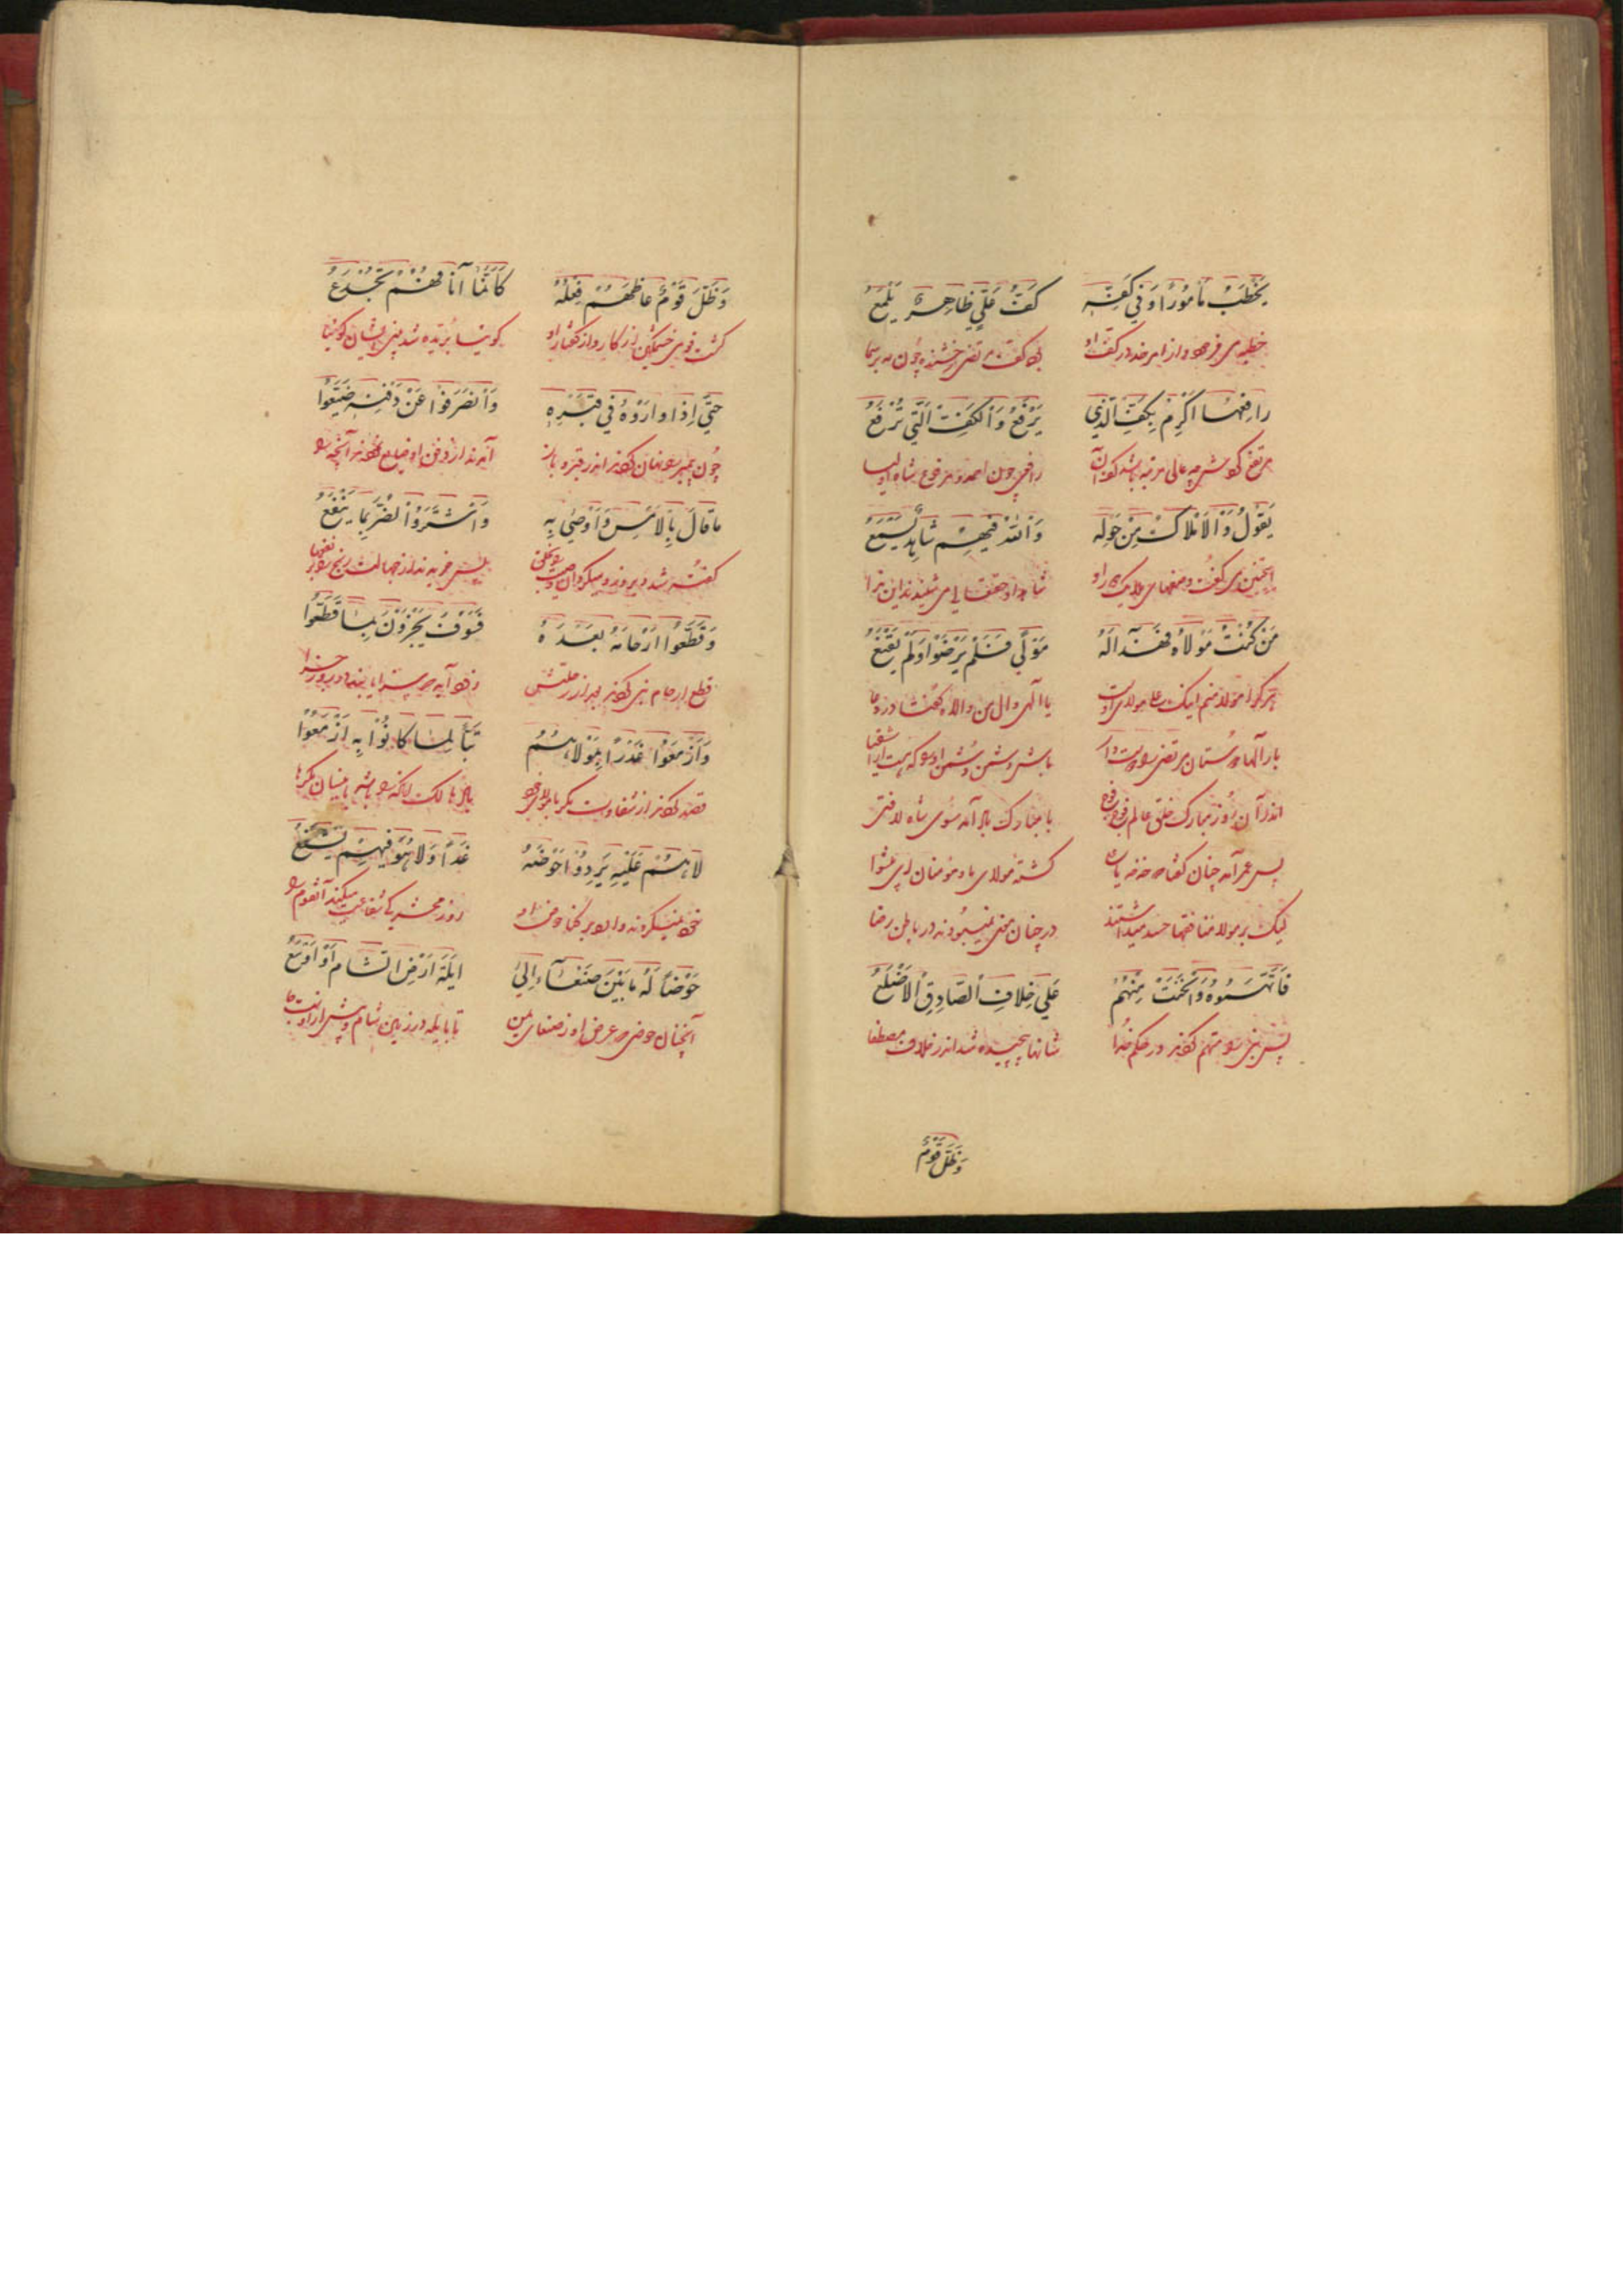 يَخْطُبُ مَأمُورًا وَفِي كَفِّهِ كَفُّ عَلِيٍّ ظَاهِرٌ يَلْمَعُ
خطبه می فرمود از امر خدا در کفّ او کف مرتضی رخشنده چون بر سما
رافِعُها اَكْرِمْ بِكَفِّ الَّذِي يَرْفَعُ وَالْكَفِّ الَّتِي تُرْفَعُ
رافعی چون احمد و مرفوع شاه اولیا
يَقُولُ وَالْاَمْلَاكُ مِنْ حَوْلِهِ وَاللهُ فِيهِمْ شَاهِدٌ يَسْمَعُ
اینچنین می گفت و صفهای ملایک گرد او شاهد او حقتعالی می شنید این ندا
مَنْ كُنْتُ مَوْلَاهُ فَهَذَا لَهُ مَوْلًى فَلَمْ يَرْضَوْا وَلَمْ يَقْنَعُ
هر کرا مولا منم اینک علی مولای اوست یا الهی وال من والاه گفتا در دعا
بار الها دوستان مرتضی را دوست دار باش دشمن دشمن او را که هست از اشقیا
اندر آن روز مبارک خلق عالم فوج فوج با مبارک باد آمد سوی شاه لافتی
پس عمر آمد چنان گفتا گشته مولای ما و مؤمنان ای پیشوا
لیک بر مولا منافقها حسد میداشتند در چنان نمیبودند در باطن رضا
فَاتَّهَمُوهُ وَانْحَنَتْ مِنْهُمُ عَلَى خِلَافِ الصَّادِقِ الْاَضْلُعُ
پس نبی را متهم کردند در حکم خدا شانها پیچیده شد اندر خلاف مصطفا
وَظَلَّ قَوْمٌ
وَظَلَّ قَوْمٌ غَاظَهُمْ فِعْلُهُ كَاَنَّمَا آنَافُهُمْ تُجْدَعُ
گشت قومی خشمگین از کار و از گفتار او گوئیا بُریده شد بینی ایشان گوئیا
حَتَّى اِذَا وَارَوْهُ فِي قَبْرِهِ وَانْصَرَفُوا عَنْ دَفْنِهِ ضَيَّعُوا
چون پیمبر را نهان کردند اندر قبر و باز آمدند از دفن او ضایع نمودند آنچه را
مَا قَالَ بِالْاَمْسِ وَاَوْصَى بِهِ وَاشْتَرَوُا الضُّرَّ بِمَا يَنْفَعُ
گفته شد دیروز و میکرد آن وصیت پس خریدند از جهالت رنج را بر نفعها
وَقَطَّعُوا اَرْحَامَهُ بَعْدَهُ فَسَوْفَ يُجْزَوْنَ بِمَا قَطَّعُوا
قطع ارحام نبی کردند بعد از رحلتش زود آید یابند در روز جزا
وَاَزْمَعُوا غَدْرًا بِمَوْلَاهُمُ تَبًّا لِمَا كَانُوا بِهِ اَزْمَعُوا
قصد کردند از شقاوت مکر با مولای خود
لَا هُمْ عَلَيْهِ يَرِدُوا حَوْضَهُ غَدًا وَلَا هُوَ فِيهِمْ يَشْفَعُ
روز محشر کی شفاعت میکند آنقوم را
حَوْضٌ لَهُ مَا بَيْنَ صَنْعَاءَ اِلَى اَيْلَةَ اَرْضِ الشَّامِ اَوْ اَوْسَعُ
آنچنان حوضی که عرض او ز صنعای یمن تا بایله در زمین شام